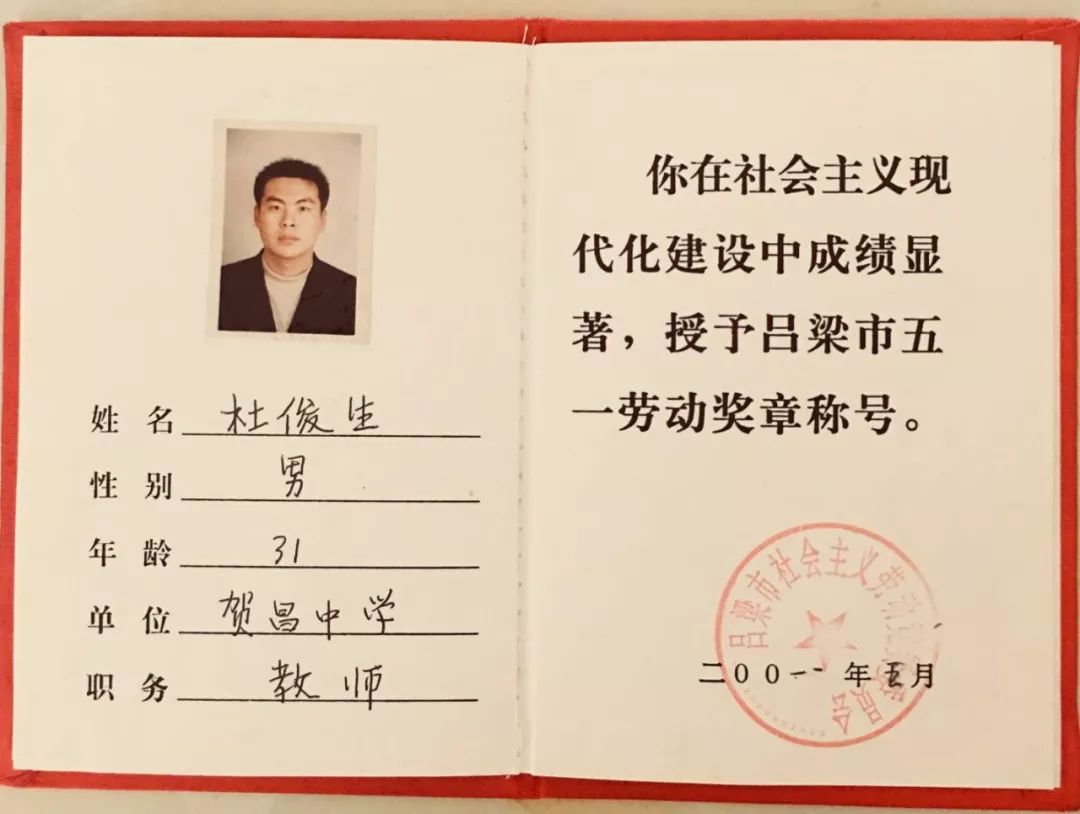 姓 名 杜俊生
性 别 男
年 龄 31
单 位 贺昌中学
职 务 教师
你在社会主义现
代化建设中成绩显
著，授予吕梁市五
一劳动奖章称号。
吕梁市社会主义劳动竞赛委员会
年五月